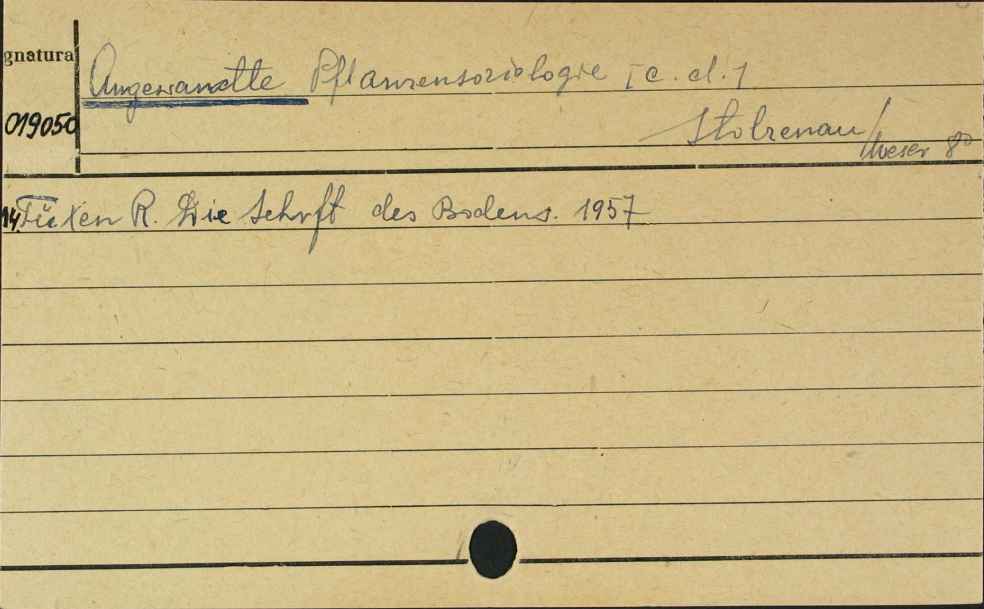 gnatura
Angewandte Pflanzensoziologie [c.d.1
019050
Stolzenau/Weser 8°
14. Tüxen R. Die Schrift des Bodens. 1957